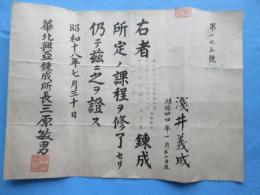 第一七五號
淺井義成
明治四四年一月二一日生
右者
錬成
所定ノ課程ヲ修了セリ
仍テ茲ニ之ヲ證ス
昭和十八年七月三十日
華北興亞錬成所長三原敏男